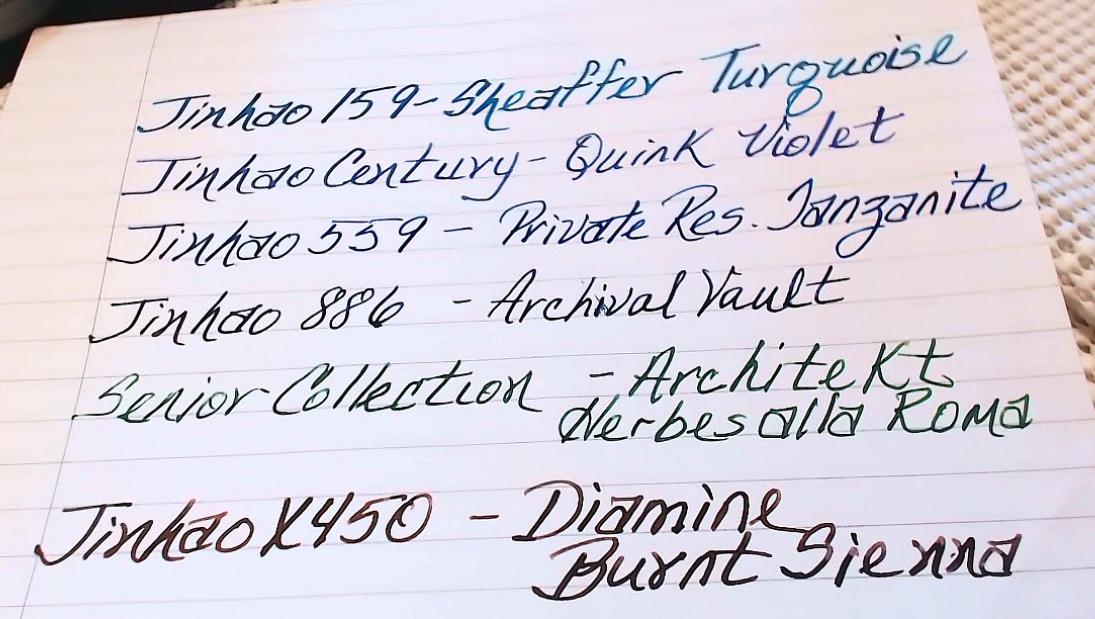 Jinhao 159 - Sheaffer Turquoise
Jinhao Century - Quink Violet
Jinhao 559 - Private Res. Tanzanite
Jinhao 886 - Archival Vault
Senior Collection - Architekt
Herbes alla Roma
Jinhao X450 - Diamine
Burnt Sienna